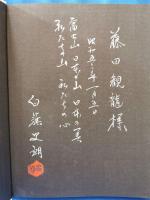 藤田観龍様
昭和五二年一月五日
富士山 日本の山 日本の美
私たちの山 私たちの心
白籏史朗